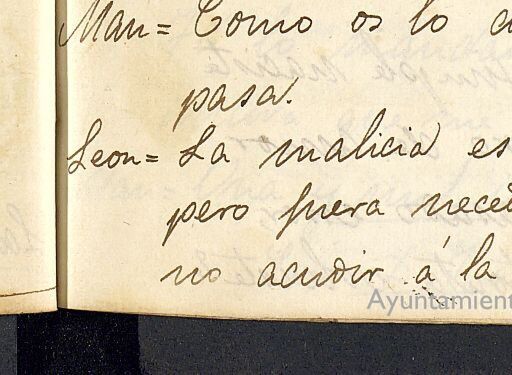 Man= Como os lo
pasa.
Leon= La malicia es
pero fuera nece
no acudir á la
Ayuntamient